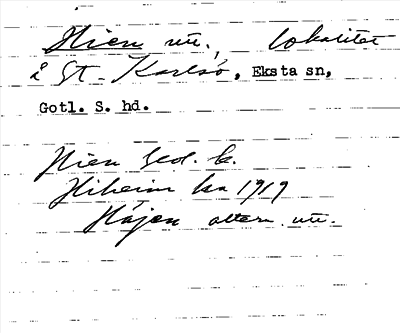 Hien nu., lokalitet
å St. Karlsö, Eksta sn,
Gotl. S. hd.
Hien Ged. k.
Hiheim ka 1919
Höjen altern. nu.